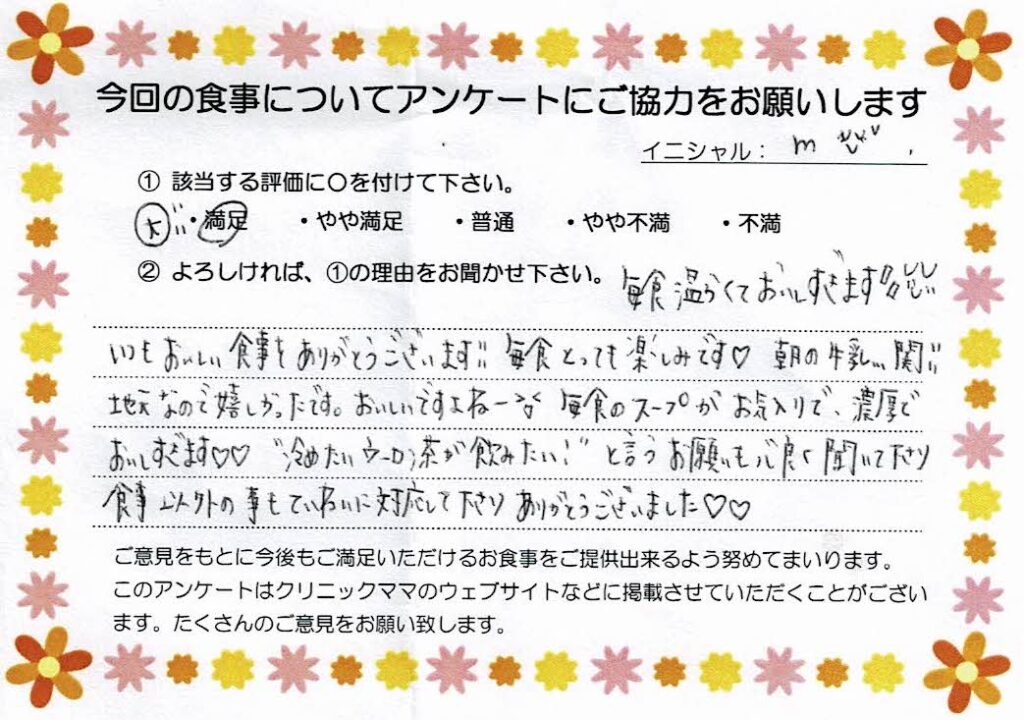 今回の食事についてアンケートにご協力をお願いします
イニシャル： m
① 該当する評価に〇を付けて下さい。
大!! ・満足 ・やや満足 ・普通 ・やや不満 ・不満
② よろしければ、①の理由をお聞かせ下さい。 毎食温かくておいしすぎます!!
いつもおいしい食事をありがとうございます!! 毎食とっても楽しみです♡ 朝の牛乳が関!!
地元なので嬉しかったです。おいしいですよねー 毎食のスープがお気入りで、濃厚で
おいしすぎます♡♡ “冷めたいウーロン茶が飲みたい!” と言うお願いも心良く聞いて下さり
食事以外の事もていねいに対応して下さり ありがとうございました♡♡
ご意見をもとに今後もご満足いただけるお食事をご提供出来るよう努めてまいります。
このアンケートはクリニックママのウェブサイトなどに掲載させていただくことがござい
ます。たくさんのご意見をお願い致します。